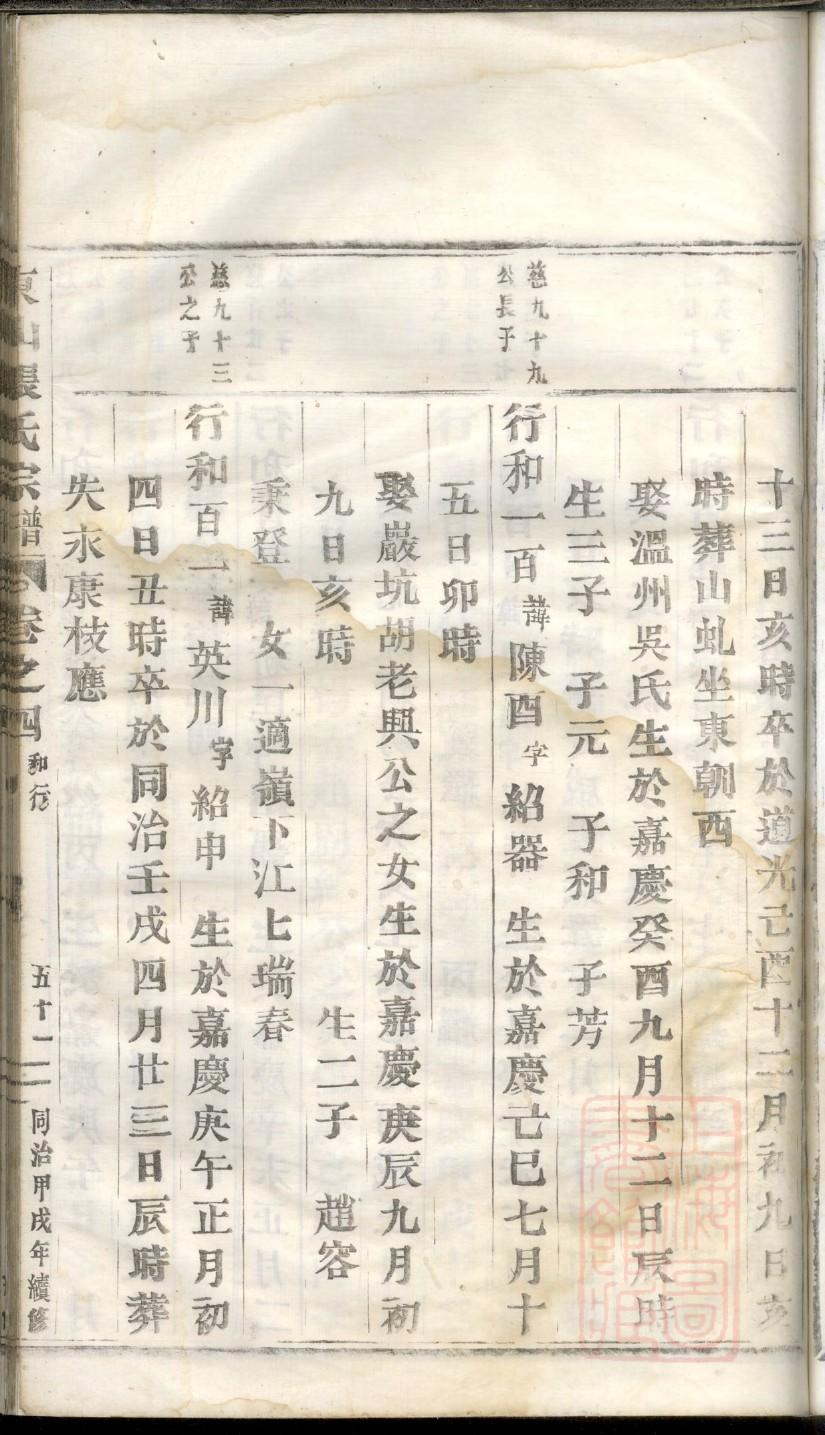 十三日亥時卒於道光己酉十二月初九日亥
時葬山虬坐東朝西
娶溫州吳氏生於嘉慶癸酉九月十二日辰時
生三子 子元 子和 子芳
慈九十九
公長子
行和一百諱陳酉字紹器 生於嘉慶己巳七月十
五日卯時
娶嚴坑胡老興公之女生於嘉慶庚辰九月初
九日亥時 生二子 趙容
秉登 女一適嶺下江七瑞春
慈九十三
公之子
行和百一諱英川字紹申 生於嘉慶庚午正月初
四日丑時卒於同治壬戌四月廿三日辰時葬
失永康枝應
東山張氏宗譜 卷之四 和行 五十一 同治甲戌年續修